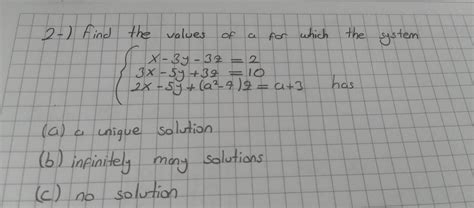 2-) Find the values of a for which the system
x - 3y - 3z = 2
3x - 5y + 3z = 10
2x - 5y + (a²-9)z = a+3 has
(a) a unique solution
(b) infinitely many solutions
(c) no solution